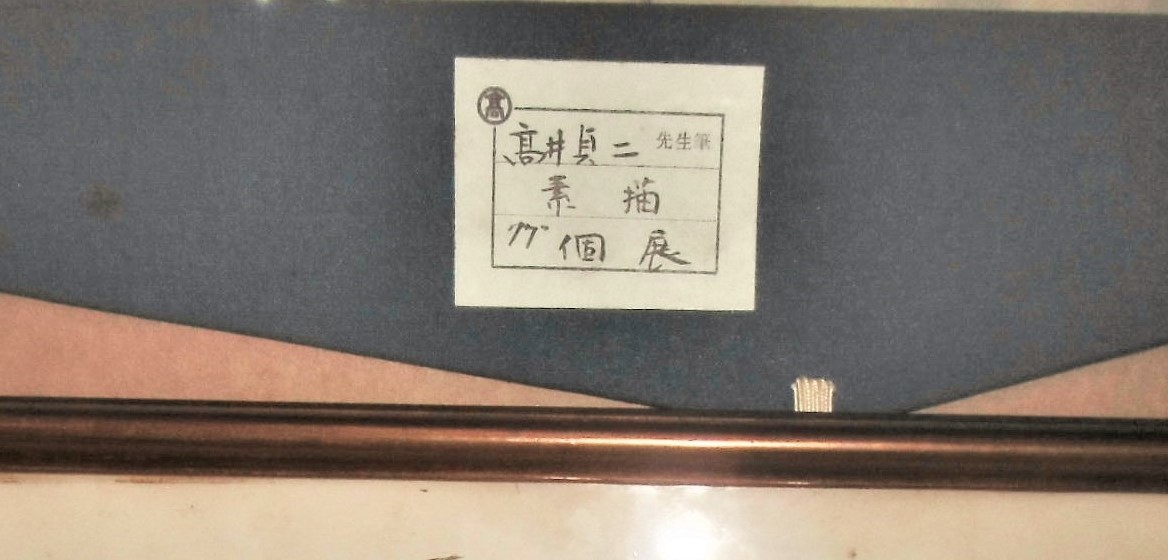 髙
髙井貞二 先生筆
素描
個展